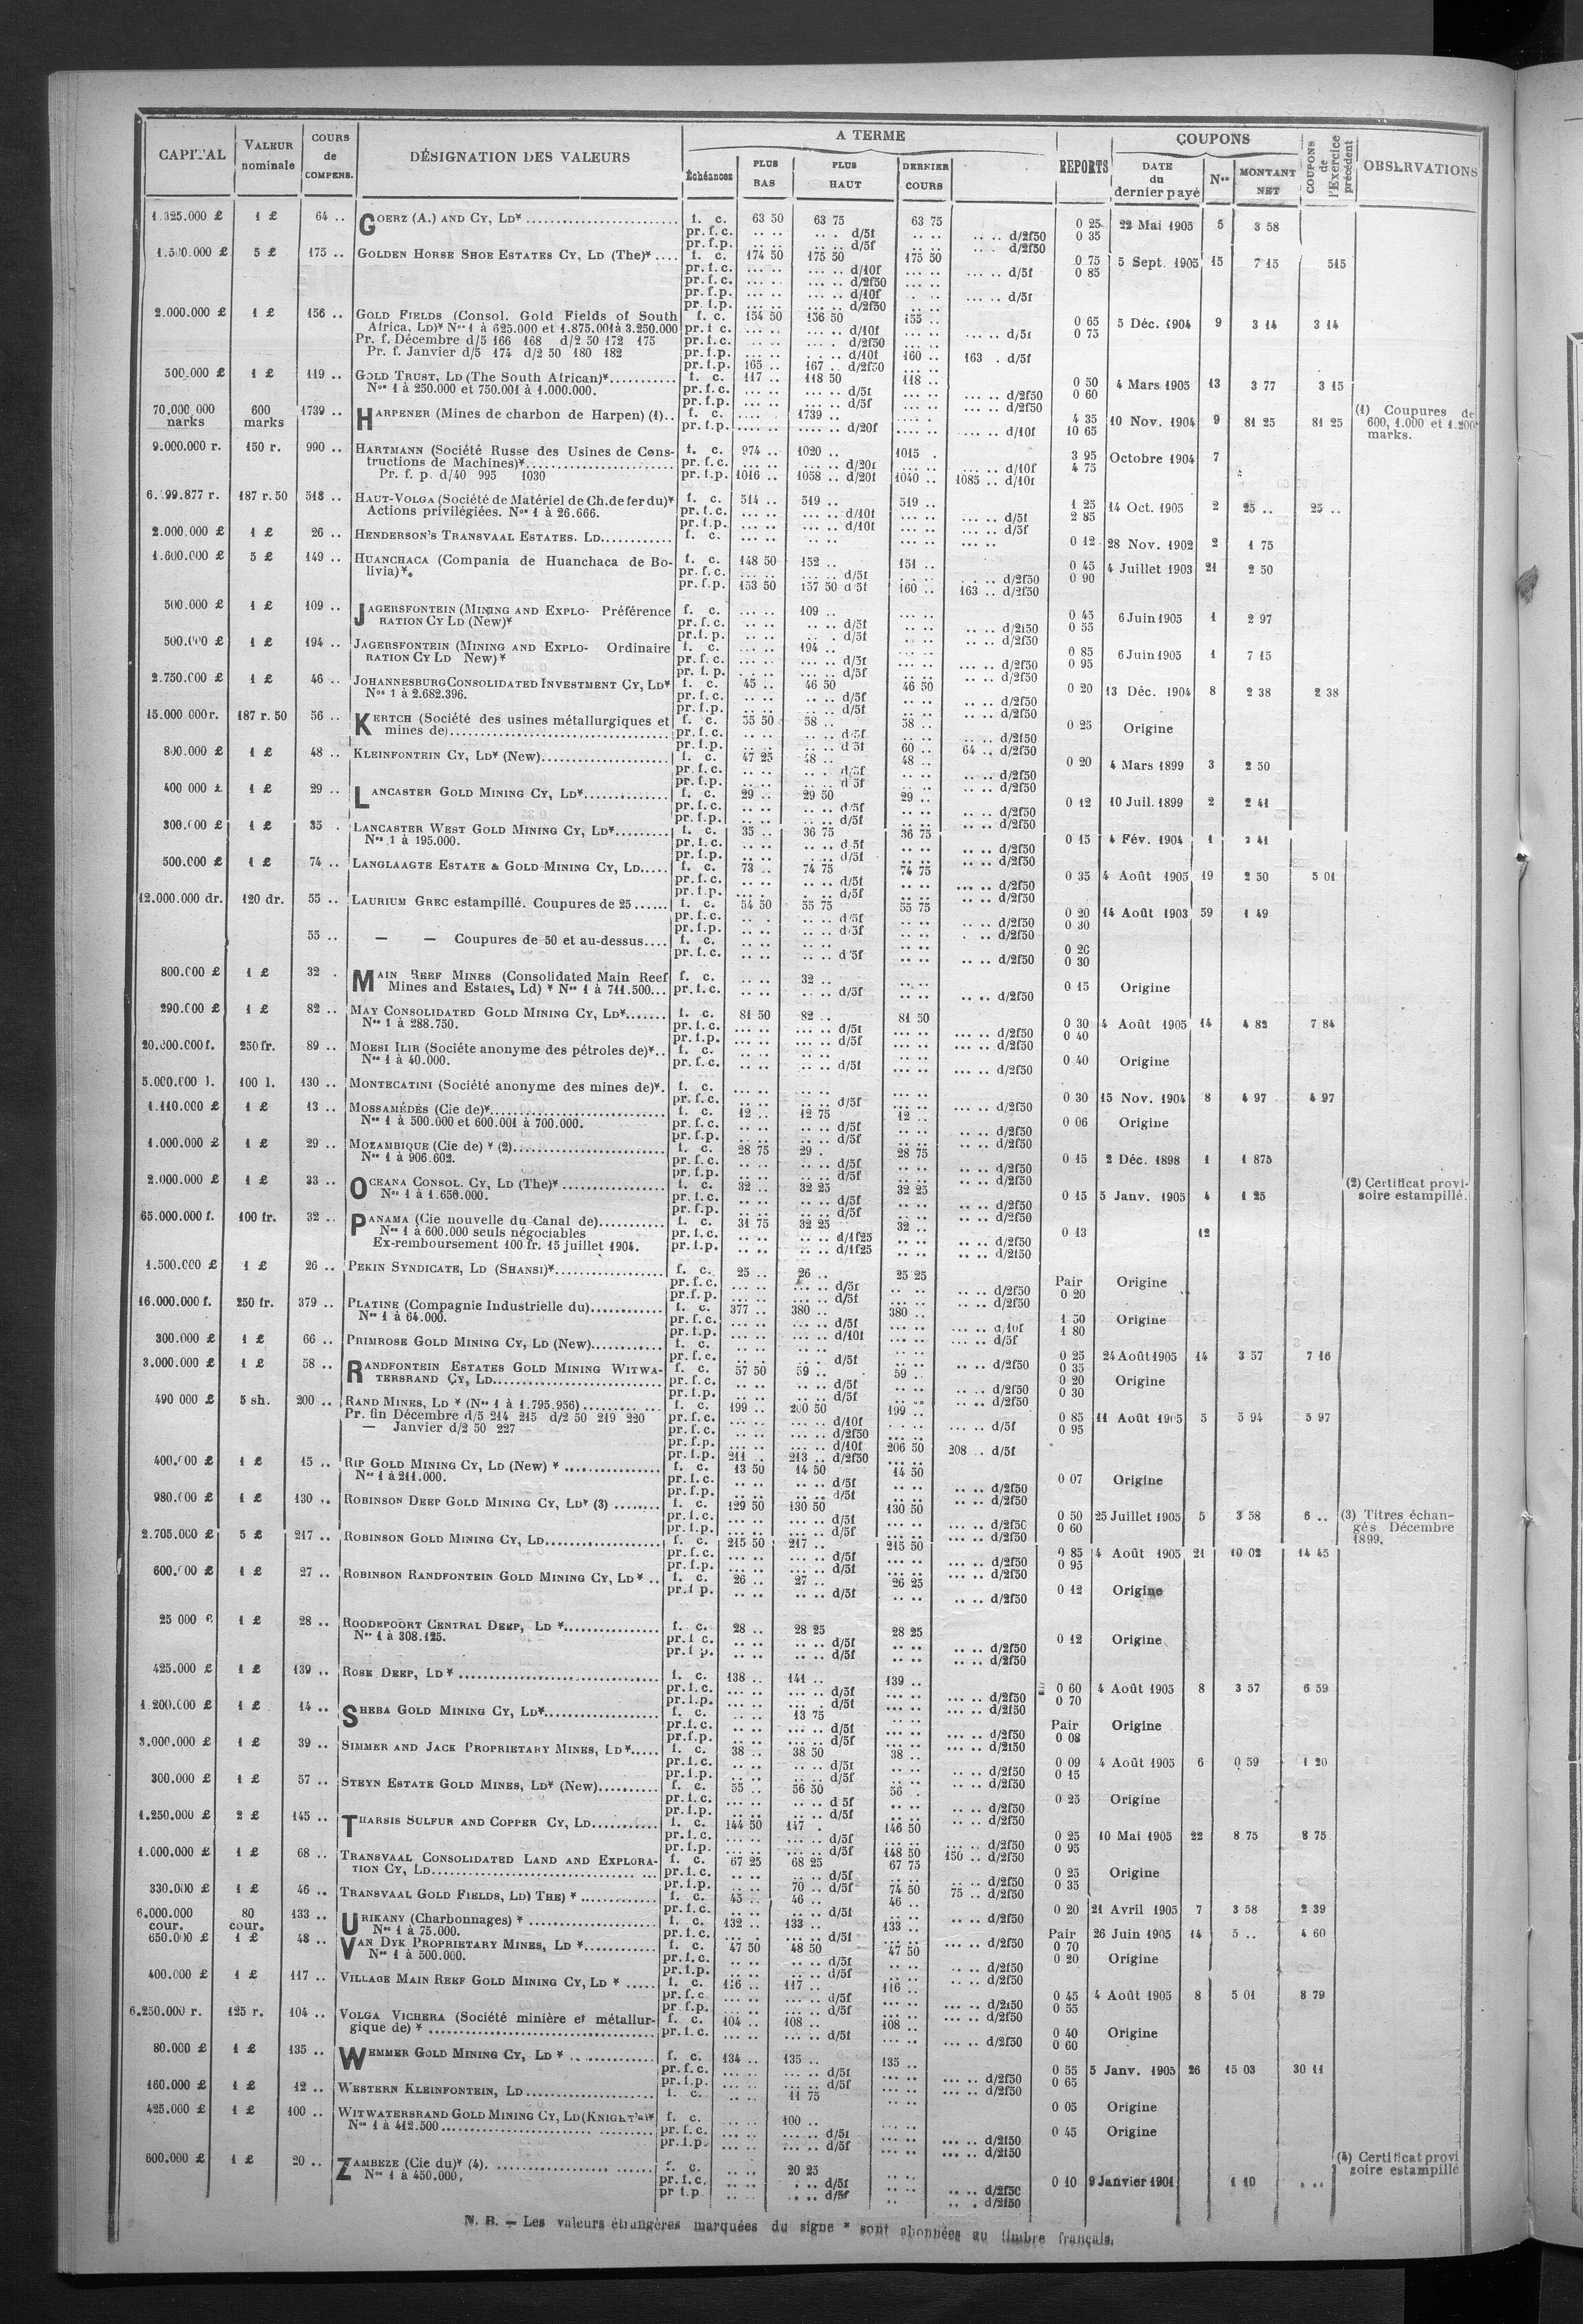 CAPITAL VALEUR nominale COURS de COMPENS. DÉSIGNATION DES VALEURS A TERME Échéances PLUS BAS PLUS HAUT DERNIER COURS REPORTS COUPONS DATE du dernier payé Nos MONTANT NET COUPONS de l'Exercice précédent OBSERVATIONS
1.325.000 £ 1 £ 64 .. GOERZ (A.) AND CY, LD* f. c. 63 50 63 75 63 75 0 25 22 Mai 1905 5 3 58
pr. f.c. .. .. .. .. d/5f .. .. .. .. d/2f50 0 35
pr. f.p. .. .. .. .. d/5f .. .. .. .. d/2f50
5 £ 175 .. GOLDEN HORSE SHOE ESTATES CY, LD (The)* .... f. c. 174 50 175 50 175 50 0 75 5 Sept. 1905 15 7 15 515
pr. f.c. ... .. ... .. d/10f ... .. ... .. d/5f 0 85
pr. f.c. ... .. ... .. d/2f50
pr. f.p. ... .. ... .. d/10f ... .. d/5f
pr. f.p. ... .. ... .. d/2f50
2.000.000 £ 1 £ 156 .. GOLD FIELDS (Consol. Gold Fields of South f. c. 154 50 156 50 155 .. 0 65 5 Déc. 1904 9 3 14 3 14
Africa, LD)* Nos 1 à 625.000 et 1.875.001 à 3.250.000 pr. f.c. ... .. ... .. d/10f ... .. ... .. d/5f 0 75
Pr. f. Décembre d/5 166 168 d/2 50 172 175 pr. f.c. ... .. d/2f50
Pr. f. Janvier d/5 174 d/2 50 180 182 pr. f.p. ... .. d/10f 160 .. 163 . d/5f
pr. f.p. 165 .. 167 .. d/2f50
500.000 £ 1 £ 119 .. GOLD TRUST, LD (The South African)* f. c. 117 .. 118 50 118 .. 0 50 4 Mars 1905 13 3 77 3 15
Nos 1 à 250.000 et 750.001 à 1.000.000. pr. f.c. ... .. ... .. d/5f ... .. ... .. d/2f50 0 60
pr. f.p. ... .. ... .. d/5f ... .. ... .. d/2f50
70.000 000 marks 600 marks 1739 .. HARPENER (Mines de charbon de Harpen) (1).. f. c. .... . 1739 .. 4 35 10 Nov. 1904 9 81 25 81 25 (1) Coupures de 600, 1.000 et 1.200 marks.
pr. f.p. .... .. .... .. d/20f .... .. d/10f 10 65
9.000.000 r. 150 r. 990 .. HARTMANN (Société Russe des Usines de Cons- f. c. 974 .. 1020 .. 1015 . 3 95 Octobre 1904 7
tructions de Machines)* pr. f.c. ... .. .... .. d/20f ... .. ... .. d/10f 4 75
Pr. f. p. d/40 995 1030 pr. f.p. 1016 .. 1058 .. d/20f 1040 .. 1085 .. d/10f
187 r. 50 518 .. HAUT-VOLGA (Société de Matériel de Ch. de fer du)* f. c. 514 .. 519 .. 519 .. 1 25 14 Oct. 1905 2 25 .. 25 ..
Actions privilégiées. Nos 1 à 26.666. pr. f.c. ... .. ... .. d/10f ... .. ... .. d/5f 2 85
pr. f.p. ... .. ... .. d/10f ... .. ... .. d/5f
2.000.000 £ 1 £ 26 .. HENDERSON'S TRANSVAAL ESTATES. LD f. c. ... .. .. .. ... .. 0 12 28 Nov. 1902 2 1 75
1.600.000 £ 5 £ 149 .. HUANCHACA (Compania de Huanchaca de Bo- f. c. 148 50 152 .. 151 .. 0 45 4 Juillet 1903 21 2 50
livia)*. pr. f.c. ... .. ... .. d/5f ... .. d/2f50 0 90
pr. f.p. 153 50 157 50 d/5f 160 .. 163 .. d/2f50
500.000 £ 1 £ 109 .. JAGERSFONTEIN (MINING AND EXPLO- Préférence f. c. ... .. 109 .. ... .. 0 45 6 Juin 1905 1 2 97
RATION CY LD (New)* pr. f.c. ... .. .. .. d/5f ... .. d/2f50 0 55
pr. f.p. ... .. .. . d/5f ... .. d/2f50
500.000 £ 1 £ 194 .. JAGERSFONTEIN (MINING AND EXPLO- Ordinaire f. c. ... .. 194 .. 0 85 6 Juin 1905 1 7 15
RATION CY LD New)* pr. f.c. ... .. ... .. d/5f ... .. ... .. d/2f50 0 95
pr. f.p. ... .. d/5f ... .. d/2f50
2.750.000 £ 1 £ 46 .. JOHANNESBURG CONSOLIDATED INVESTMENT CY, LD* f. c. 45 .. 46 50 46 50 0 20 13 Déc. 1904 8 2 38 2 38
Nos 1 à 2.682.396. pr. f.c. .. .. .. .. d/5f .. .. .. .. d/2f50
pr. f.p. .. .. .. .. d/5f .. .. .. .. d/2f50
15.000 000 r. 187 r. 50 56 .. KERTCH (Société des usines métallurgiques et f. c. 55 50 58 .. 58 .. 0 25 Origine
mines de) pr. f.c. .. .. .. .. d/5f .. .. .. .. d/2f50
pr. f.p. .. .. .. .. d/5f 60 .. 64 .. d/2f50
800.000 £ 1 £ 48 .. KLEINFONTEIN CY, LD* (New) f. c. 47 25 48 .. 48 .. 0 20 4 Mars 1899 3 2 50
pr. f.c. .. .. .. . d/5f .. .. .. .. d/2f50
pr. f.p. .. .. .. .. d/5f .. .. .. .. d/2f50
400 000 £ 1 £ 29 .. LANCASTER GOLD MINING CY, LD* f. c. 29 .. 29 50 29 .. 0 12 10 Juil. 1899 2 2 41
pr. f.c. .. .. .. .. d/5f .. .. .. .. d/2f50
pr. f.p. .. .. .. .. d/5f .. .. .. .. d/2f50
300.000 £ 1 £ 35 . LANCASTER WEST GOLD MINING CY, LD* f. c. 35 .. 36 75 36 75 0 15 4 Fév. 1904 1 2 41
Nos 1 à 195.000. pr. f.c. .. .. .. .. d/5f .. .. .. .. d/2f50
pr. f.p. .. .. .. .. d/5f .. .. .. .. d/2f50
500.000 £ 1 £ 74 .. LANGLAAGTE ESTATE & GOLD MINING CY, LD f. c. 73 .. 74 75 74 75 0 35 4 Août 1905 19 2 50 5 01
pr. f.c. .. .. .. .. d/5f .. .. ... .. d/2f50
pr. f.p. .. .. .. .. d/5f .. .. ... .. d/2f50
12.000.000 dr. 120 dr. 55 .. LAURIUM GREC estampillé. Coupures de 25 f. c. 54 50 55 75 55 75 0 20 14 Août 1903 59 1 49
pr. f.c. .. . .. .. d/5f .. .. .. .. d/2f50 0 30
pr. f.p. .. .. .. .. d/5f .. .. .. .. d/2f50
55 .. — — Coupures de 50 et au-dessus.... f. c. .. .. .. .. 0 20
pr. f.c. .. .. .. .. d/5f .. .. .. .. d/2f50 0 30
800.000 £ 1 £ 32 . MAIN REEF MINES (Consolidated Main Reef f. c. .. .. 32 .. .. .. 0 15 Origine
Mines and Estates, Ld) * Nos 1 à 711.500... pr. f.c. .. .. .. .. d/5f .. .. .. .. d/2f50
290.000 £ 1 £ 82 .. MAY CONSOLIDATED GOLD MINING CY, LD* f. c. 81 50 82 .. 81 50 0 30 4 Août 1905 14 4 82 7 84
Nos 1 à 288.750. pr. f.c. ... .. ... .. d/5f ... .. ... .. d/2f50 0 40
pr. f.p. ... .. ... .. d/5f ... .. ... .. d/2f50
250 fr. 89 .. MOESI ILIR (Sociéte anonyme des pétroles de)*.. f. c. .. .. .. .. 0 40 Origine
Nos 1 à 40.000. pr. f.c. .. .. .. .. d/5f .. .. .. .. d/2f50
5.000.000 l. 100 l. 130 .. MONTECATINI (Société anonyme des mines de)*. f. c. ... .. ... .. ... .. 0 30 15 Nov. 1904 8 4 97 4 97
pr. f.c. ... .. ... .. d/5f ... .. ... .. d/2f50
1.110.000 £ 1 £ 13 .. MOSSAMÉDÈS (Cie de)* f. c. 12 .. 12 75 12 .. 0 06 Origine
Nos 1 à 500.000 et 600.001 à 700.000. pr. f.c. .. .. .. .. d/5f .. .. .. .. d/2f50
pr. f.p. .. .. .. .. d/5f .. .. .. .. d/2f50
1.000.000 £ 1 £ 29 .. MOZAMBIQUE (Cie de) * (2) f. c. 28 75 29 . 28 75 0 15 2 Déc. 1898 1 1 875
Nos 1 à 906.602. pr. f.c. .. .. .. .. d/5f .. .. .. .. d/2f50
pr. f.p. .. .. .. .. d/5f .. .. .. .. d/2f50
2.000.000 £ 1 £ 33 .. OCEANA CONSOL. CY, LD (The)* f. c. 32 .. 32 25 32 25 0 15 5 Janv. 1905 4 1 25 (2) Certificat provi- soire estampillé.
Nos 1 à 1.650.000. pr. f.c. .. .. .. .. d/5f .. .. .. .. d/2f50
pr. f.p. .. .. .. .. d/5f .. .. .. .. d/2f50
65.000.000 f. 100 fr. 32 .. PANAMA (Cie nouvelle du Canal de) f. c. 31 75 32 25 32 .. 0 13 12
Nos 1 à 600.000 seuls négociables pr. f.c. .. .. .. .. d/1f25 .. .. .. .. d/2f50
Ex-remboursement 100 fr. 15 juillet 1904. pr. f.p. .. .. .. .. d/1f25 .. .. .. .. d/2f50
1.500.000 £ 1 £ 26 .. PEKIN SYNDICATE, LD (SHANSI)* f. c. 25 .. 26 .. 25 25 Pair Origine
pr. f.c. ... .. ... .. d/5f .. .. ... .. d/2f50 0 20
pr. f.p. ... .. ... .. d/5f ... .. ... .. d/2f50
16.000.000 f. 250 fr. 379 .. PLATINE (Compagnie Industrielle du) f. c. 377 .. 380 .. 380 .. 1 50 Origine
Nos 1 à 64.000. pr. f.c. ... .. ... .. d/5f ... .. ... .. d/10f 1 80
pr. f.p. ... .. ... .. d/10f ... .. ... .. d/5f
300.000 £ 1 £ 66 .. PRIMROSE GOLD MINING CY, LD (New) f. c. .. .. .. .. 0 25 24 Août 1905 14 3 57 7 16
pr. f.c. .. .. .. .. d/5f .. .. .. .. d/2f50 0 35
3.000.000 £ 1 £ 58 .. RANDFONTEIN ESTATES GOLD MINING WITWA- f. c. 57 50 59 .. 59 .. 0 20 Origine
TERSRAND CY, LD pr. f.c. .. .. .. .. d/5f .. .. ... .. d/2f50 0 30
pr. f.p. .. .. .. .. d/5f .. .. ... .. d/2f50
490 000 £ 5 sh. 200 .. RAND MINES, LD * (Nos 1 à 1.795.956) f. c. 199 .. 200 50 199 .. 0 85 11 Août 1905 5 5 94 5 97
Pr. fin Décembre d/5 214 215 d/2 50 219 220 pr. f.c. ... .. ... .. d/10f ... .. d/5f 0 95
— Janvier d/2 50 227 pr. f.c. ... .. ... .. d/2f50
pr. f.p. ... .. ... .. d/10f 206 50 208 .. d/5f
pr. f.p. 211 .. 213 .. d/2f50
1 £ 15 .. RIP GOLD MINING CY, LD (New) * f. c. 13 50 14 50 14 50 0 07 Origine
Nos 1 à 211.000. pr. f.c. .. .. .. .. d/5f .. .. .. .. d/2f50
pr. f.p. .. .. .. .. d/5f .. .. .. .. d/2f50
980.000 £ 1 £ 130 .. ROBINSON DEEP GOLD MINING CY, LD* (3) f. c. 129 50 130 50 130 50 0 50 25 Juillet 1905 5 3 58 6 .. (3) Titres échan- gés Décembre 1899.
pr. f.c. ... .. ... .. d/5f ... .. ... .. d/2f50 0 60
pr. f.p. ... .. ... .. d/5f ... .. ... .. d/2f50
2.705.000 £ 5 £ 217 .. ROBINSON GOLD MINING CY, LD f. c. 215 50 217 .. 215 50 0 85 4 Août 1905 21 10 02 14 45
pr. f.c. ... .. ... .. d/5f ... .. ... .. d/2f50 0 95
pr. f.p. ... .. ... .. d/5f ... .. ... .. d/2f50
1 £ 27 .. ROBINSON RANDFONTEIN GOLD MINING CY, LD * .. f. c. 26 .. 27 .. 26 25 0 12 Origine
pr. f.p. .. .. .. .. d/5f .. .. .. .. d/2f50
1 £ 28 .. ROODEPOORT CENTRAL DEEP, LD * f. c. 28 .. 28 25 28 25 0 12 Origine
Nos 1 à 308.125. pr. f.c. .. .. .. .. d/5f .. .. .. .. d/2f50
pr. f.p. .. .. .. .. d/5f .. .. .. .. d/2f50
425.000 £ 1 £ 139 .. ROSE DEEP, LD * f. c. 138 .. 141 .. 139 .. 0 60 4 Août 1905 8 3 57 6 59
pr. f.c. ... .. ... .. d/5f ... .. ... .. d/2f50 0 70
pr. f.p. ... .. ... .. d/5f ... .. ... .. d/2f50
1.200.000 £ 1 £ 14 .. SHEBA GOLD MINING CY, LD* f. c. .. .. 13 75 .. .. Pair Origine
pr. f.c. .. .. .. .. d/5f ... .. ... .. d/2f50 0 08
pr. f.p. .. .. .. .. d/5f ... .. ... .. d/2f50
3.000.000 £ 1 £ 39 .. SIMMER AND JACK PROPRIETARY MINES, LD* f. c. 38 .. 38 50 38 .. 0 09 4 Août 1905 6 0 59 1 20
pr. f.c. .. .. .. .. d/5f .. .. .. .. d/2f50 0 15
pr. f.p. .. .. .. .. d/5f .. .. .. .. d/2f50
300.000 £ 1 £ 57 .. STEYN ESTATE GOLD MINES, LD* (New) f. c. 55 .. 56 50 56 . 0 25 Origine
pr. f.c. ... .. .. .. d/5f .. .. .. .. d/2f50
pr. f.p. .. .. .. .. d/5f .. .. .. .. d/2f50
1.250.000 £ 2 £ 145 .. THARSIS SULFUR AND COPPER CY, LD f. c. 144 50 147 . 146 50 0 25 10 Mai 1905 22 8 75 8 75
pr. f.c. ... .. ... .. d/5f ... .. ... .. d/2f50 0 95
pr. f.p. ... .. ... .. d/5f 148 50 150 .. d/2f50
1.000.000 £ 1 £ 68 .. TRANSVAAL CONSOLIDATED LAND AND EXPLORA- f. c. 67 25 68 25 67 75 0 25 Origine
TION CY, LD pr. f.c. .. .. .. .. d/5f .. .. .. .. d/2f50 0 35
pr. f.p. .. .. 70 .. d/5f 74 50 75 .. d/2f50
330.000 £ 1 £ 46 .. TRANSVAAL GOLD FIELDS, LD) THE) * f. c. 45 .. 46 .. 46 .. 0 20 21 Avril 1905 7 3 58 2 39
pr. f.c. .. .. .. .. d/5f .. .. .. .. d/2f50
6.000.000 cour. 80 cour. 133 .. URIKANY (Charbonnages) * f. c. 132 .. 133 .. 133 .. Pair 26 Juin 1905 14 5 .. 4 60
Nos 1 à 75.000. pr. f.c. ... . ... .. d/5f ... .. ... .. d/2f50 0 70
650.000 £ 1 £ 48 .. VAN DYK PROPRIETARY MINES, LD * f. c. 47 50 48 50 47 50 0 20 Origine
Nos 1 à 500.000. pr. f.c. .. .. .. .. d/5f .. .. .. .. d/2f50
pr. f.p. .. .. .. .. d/5f .. .. .. .. d/2f50
400.000 £ 1 £ 117 .. VILLAGE MAIN REEF GOLD MINING CY, LD * f. c. 116 .. 117 .. 116 .. 0 45 4 Août 1905 8 5 01 8 79
pr. f.c. ... .. ... .. d/5f ... .. ... .. d/2f50 0 55
pr. f.p. ... .. ... .. d/5f ... .. ... .. d/2f50
6.250.000 r. 125 r. 104 .. VOLGA VICHERA (Société minière et métallur- f. c. 104 .. 108 .. 108 .. 0 40 Origine
gique de) * pr. f.c. ... .. ... .. d/5f ... .. ... .. d/2f50 0 60
80.000 £ 1 £ 135 .. WEMMER GOLD MINING CY, LD * f. c. 134 .. 135 .. 135 .. 0 55 5 Janv. 1905 26 15 03 30 11
pr. f.c. ... .. ... .. d/5f ... .. ... .. d/2f50 0 65
pr. f.p. ... .. ... .. d/5f ... .. ... .. d/2f50
160.000 £ 1 £ 12 .. WESTERN KLEINFONTEIN, LD f. c. .. .. 11 75 .. .. 0 05 Origine
425.000 £ 1 £ 100 .. WITWATERSRAND GOLD MINING CY, LD (KNIGHT'S)* f. c. ... .. 100 .. 0 45 Origine
Nos 1 à 412.500 pr. f.c. ... .. ... .. d/5f ... .. ... .. d/2f50
pr. f.p. ... .. ... .. d/5f ... .. ... .. d/2f50
600.000 £ 1 £ 20 .. ZAMBEZE (Cie du)* (4) f. c. .. .. 20 25 0 10 9 Janvier 1901 1 10 . .. (4) Certificat provi soire estampillé
Nos 1 à 450.000, pr. f.c. .. .. . .. d/5f .. .. .. d/2f50
pr f.p. .. .. .. .. d/5f .. .. . d/2f50
N. B. — Les valeurs étrangères marquées du signe * sont abonnées au timbre français.